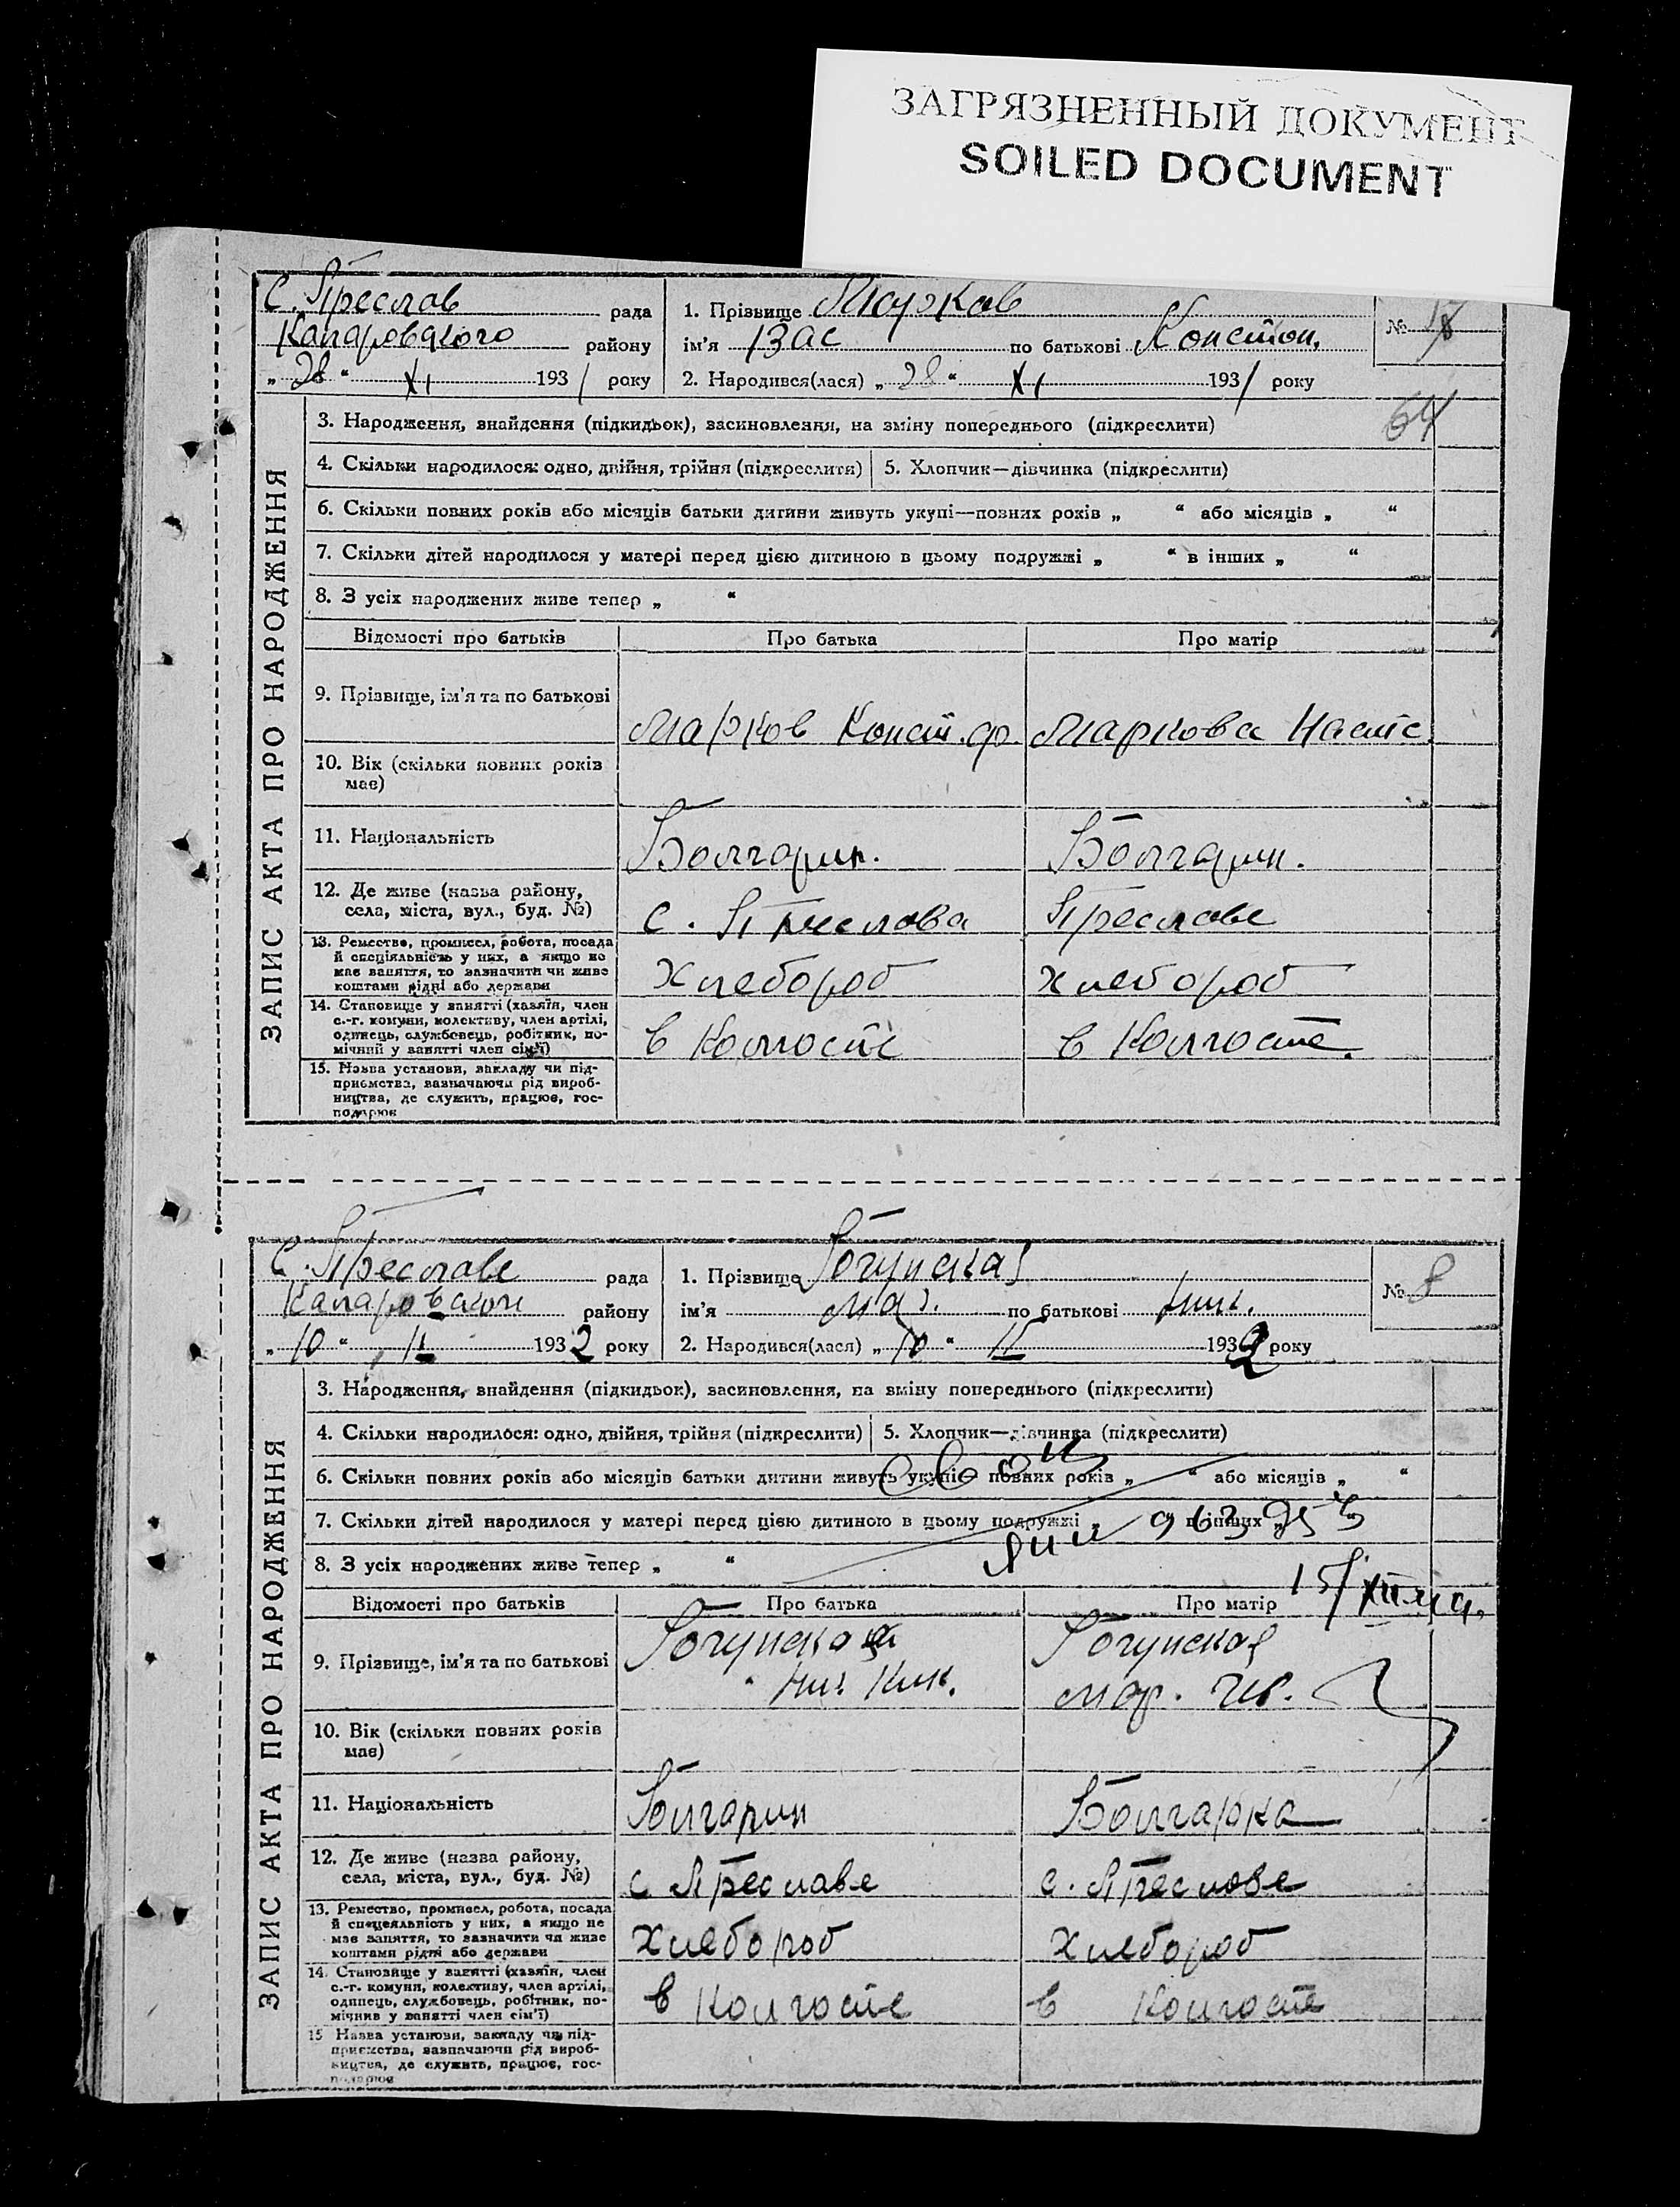 ЗАГРЯЗНЕННЫЙ ДОКУМЕНТ
SOILED DOCUMENT
с. Преслав рада
району
„ 28 “ XI 1931 року
1. Прізвище Марков
ім'я Вас по батькові Констан.
2. Народився(лася) „ 28 “ XI 1931 року
№
64
ЗАПИС АКТА ПРО НАРОДЖЕННЯ
3. Народження, знайдення (підкидьок), засиновлення, на зміну попереднього (підкреслити)
4. Скільки народилося: одно, двійня, трійня (підкреслити)
5. Хлопчик—дівчинка (підкреслити)
6. Скільки повних років або місяців батьки дитини живуть укупі—повних років „ “ або місяців „ “
7. Скільки дітей народилося у матері перед цією дитиною в цьому подружжі „ “ в інших „ “
8. З усіх народжених живе тепер „ “
Відомості про батьків Про батька Про матір
9. Прізвище, ім'я та по батькові
Марков Конст. ф. Маркова Наст.
10. Вік (скільки повних років
має)
11. Національність Болгарин. Болгарин.
12. Де живе (назва району,
села, міста, вул., буд. №) с. Преслова Преславе
13. Ремество, промисел, робота, посада
й спеціяльність у них, а якщо не
має заняття, то зазначити чи живе
коштами рідні або держави
Хлебороб Хлебороб
14. Становище у занятті (хазяїн, член
с.-г. комуни, колективу, член артілі,
одинець, службовець, робітник, по-
мічний у занятті член сім'ї)
в Колгоспе в Колгоспе.
15. Назва установи, закладу чи під-
приємства, зазначаючи рід вироб-
ництва, де служить, працює, гос-
подарює
С. Преславе рада
району
„ 10 “ II 1932 року
1. Прізвище
ім'я по батькові
2. Народився(лася) „ 10 “ II 1932 року
№ 8
ЗАПИС АКТА ПРО НАРОДЖЕННЯ
3. Народження, знайдення (підкидьок), засиновлення, на зміну попереднього (підкреслити)
4. Скільки народилося: одно, двійня, трійня (підкреслити)
5. Хлопчик—дівчинка (підкреслити)
6. Скільки повних років або місяців батьки дитини живуть укупі— повних років „ “ або місяців „ “
7. Скільки дітей народилося у матері перед цією дитиною в цьому подружжі „ інших
8. З усіх народжених живе тепер „ “
Відомості про батьків Про батька Про матір
9. Прізвище, ім'я та по батькові
10. Вік (скільки повних років
має)
11. Національність Болгарин Болгарка
12. Де живе (назва району,
села, міста, вул., буд. №) с Преславе с. Преславе
13. Ремество, промисел, робота, посада
й спецеяльність у них, а якщо не
має заняття, то зазначити чи живе
коштами рідні або держави
Хлебороб Хлебороб
14. Становище у занятті (хазяїн, член
с.-г. комуни, колективу, член артілі,
одинець, службовець, робітник, по-
мічник у занятті член сім'ї)
в Колгоспе в Колгоспе
15 Назва установи, закладу чи під-
приємства, зазначаючи рід вироб-
ництва, де служить, працює, гос-
подарює